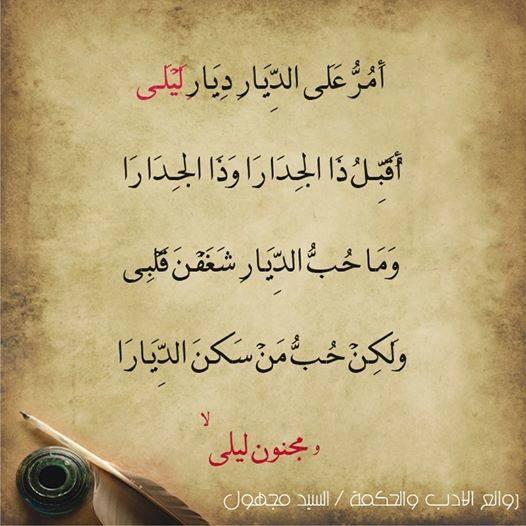 أَمُرُّ عَلَى الدِّيَارِ دِيَارِ لَيْلَى
أُقَبِّلُ ذَا الجِدَارَا وَذَا الجِدَارَا
وَمَا حُبُّ الدِّيَارِ شَغَفْنَ قَلْبِى
ولَكِنْ حُبُّ مَنْ سَكنَ الدِّيَارَا
مجنون ليلى
روائع الادب والحكمة / السيد مجهول